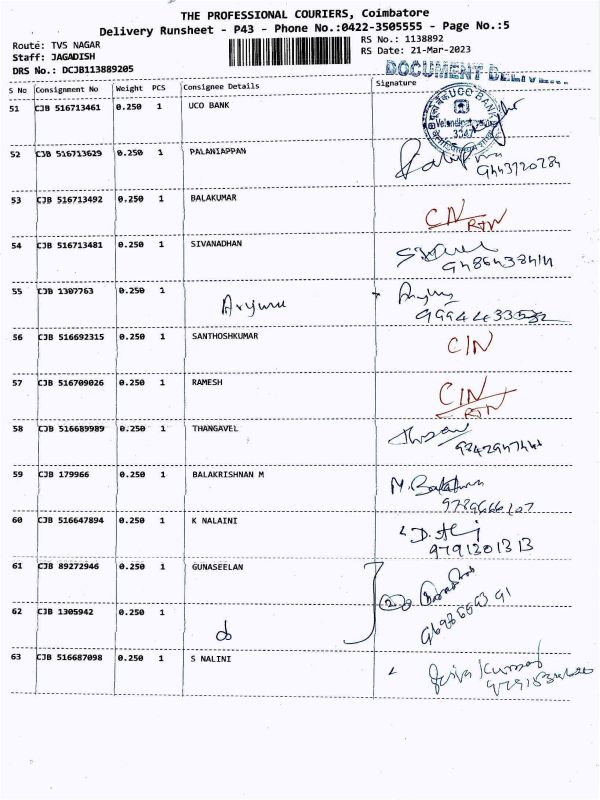 THE PROFESSIONAL COURIERS, Coimbatore
Delivery Runsheet - P43 - Phone No.:0422-3505555 - Page No.:5
Route: TVS NAGAR
Staff: JAGADISH
DRS No.: DCJB113889205
RS No.: 1138892
RS Date: 21-Mar-2023
DOCUMENT DELIVERY
S No Consignment No Weight PCS Consignee Details Signature
51 CJB 516713461 0.250 1 UCO BANK
UCO BANK
52 CJB 516713629 0.250 1 PALANIAPPAN
9443720784
53 CJB 516713492 0.250 1 BALAKUMAR
C/N
RTN
54 CJB 516713481 0.250 1 SIVANADHAN
55 CJB 1307763 0.250 1
56 CJB 516692315 0.250 1 SANTHOSHKUMAR
C/N
57 CJB 516709026 0.250 1 RAMESH
C/N
RTN
58 CJB 516689989 0.250 1 THANGAVEL
59 CJB 179966 0.250 1 BALAKRISHNAN M
60 CJB 516647894 0.250 1 K NALAINI
9791301313
61 CJB 89272946 0.250 1 GUNASEELAN
62 CJB 1305942 0.250 1
63 CJB 516687098 0.250 1 S NALINI